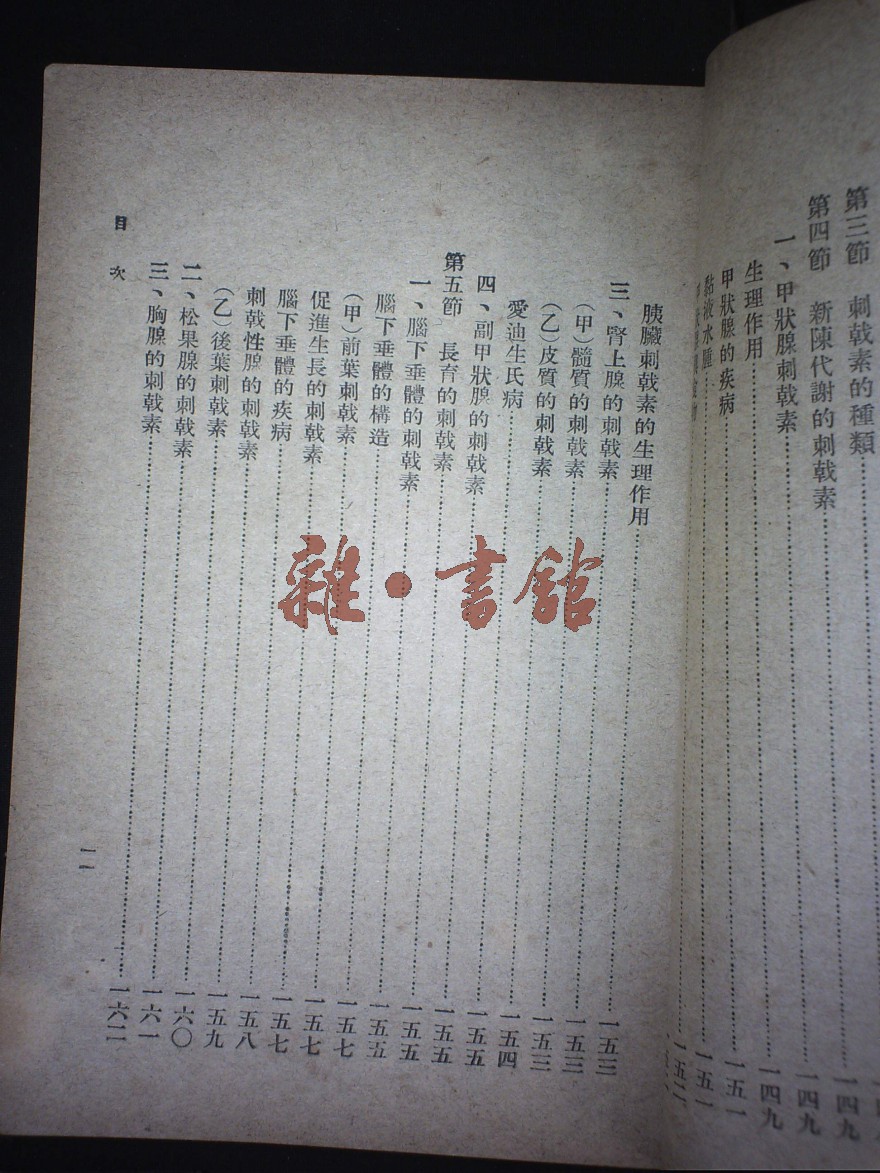 第三節 刺戟素的種類……一四九
第四節 新陳代謝的刺戟素……一四九
一、甲狀腺刺戟素……一四九
生理作用……一五一
甲狀腺的疾病……一五一
黏液水腫……一五二
胰臟刺戟素的生理作用……一五三
三、腎上腺的刺戟素……一五三
(甲)髓質的刺戟素……一五三
(乙)皮質的刺戟素……一五四
愛迪生氏病……一五五
四、副甲狀腺的刺戟素……一五五
第五節 長育的刺戟素……一五五
一、腦下垂體的刺戟素……一五五
腦下垂體的構造……一五七
(甲)前葉刺戟素……一五七
促進生長的刺戟素……一五七
腦下垂體的疾病……一五八
刺戟性腺的刺戟素……一五九
(乙)後葉刺戟素……一六〇
二、松果腺的刺戟素……一六一
三、胸腺的刺戟素……一六二
目次
一一
雜·書館